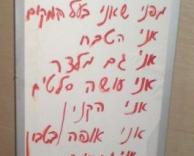 מפני שאני בעל המקום
אני הטבח
אני גם מלצר
אני עושה סלטים
אני הקניין
אני אופה בצק